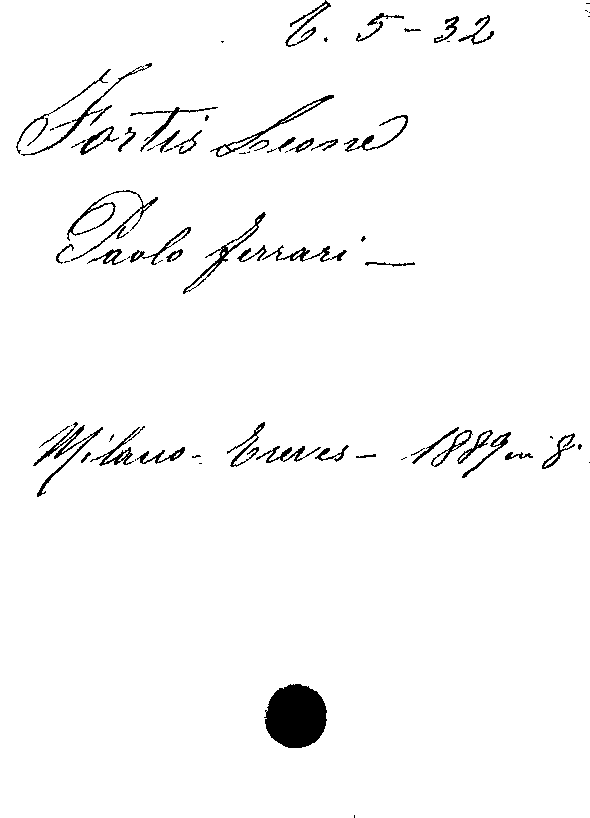 C. 5-32
Fortis Leone
Paolo Ferrari —
Milano - Treves - 1889 in 8.